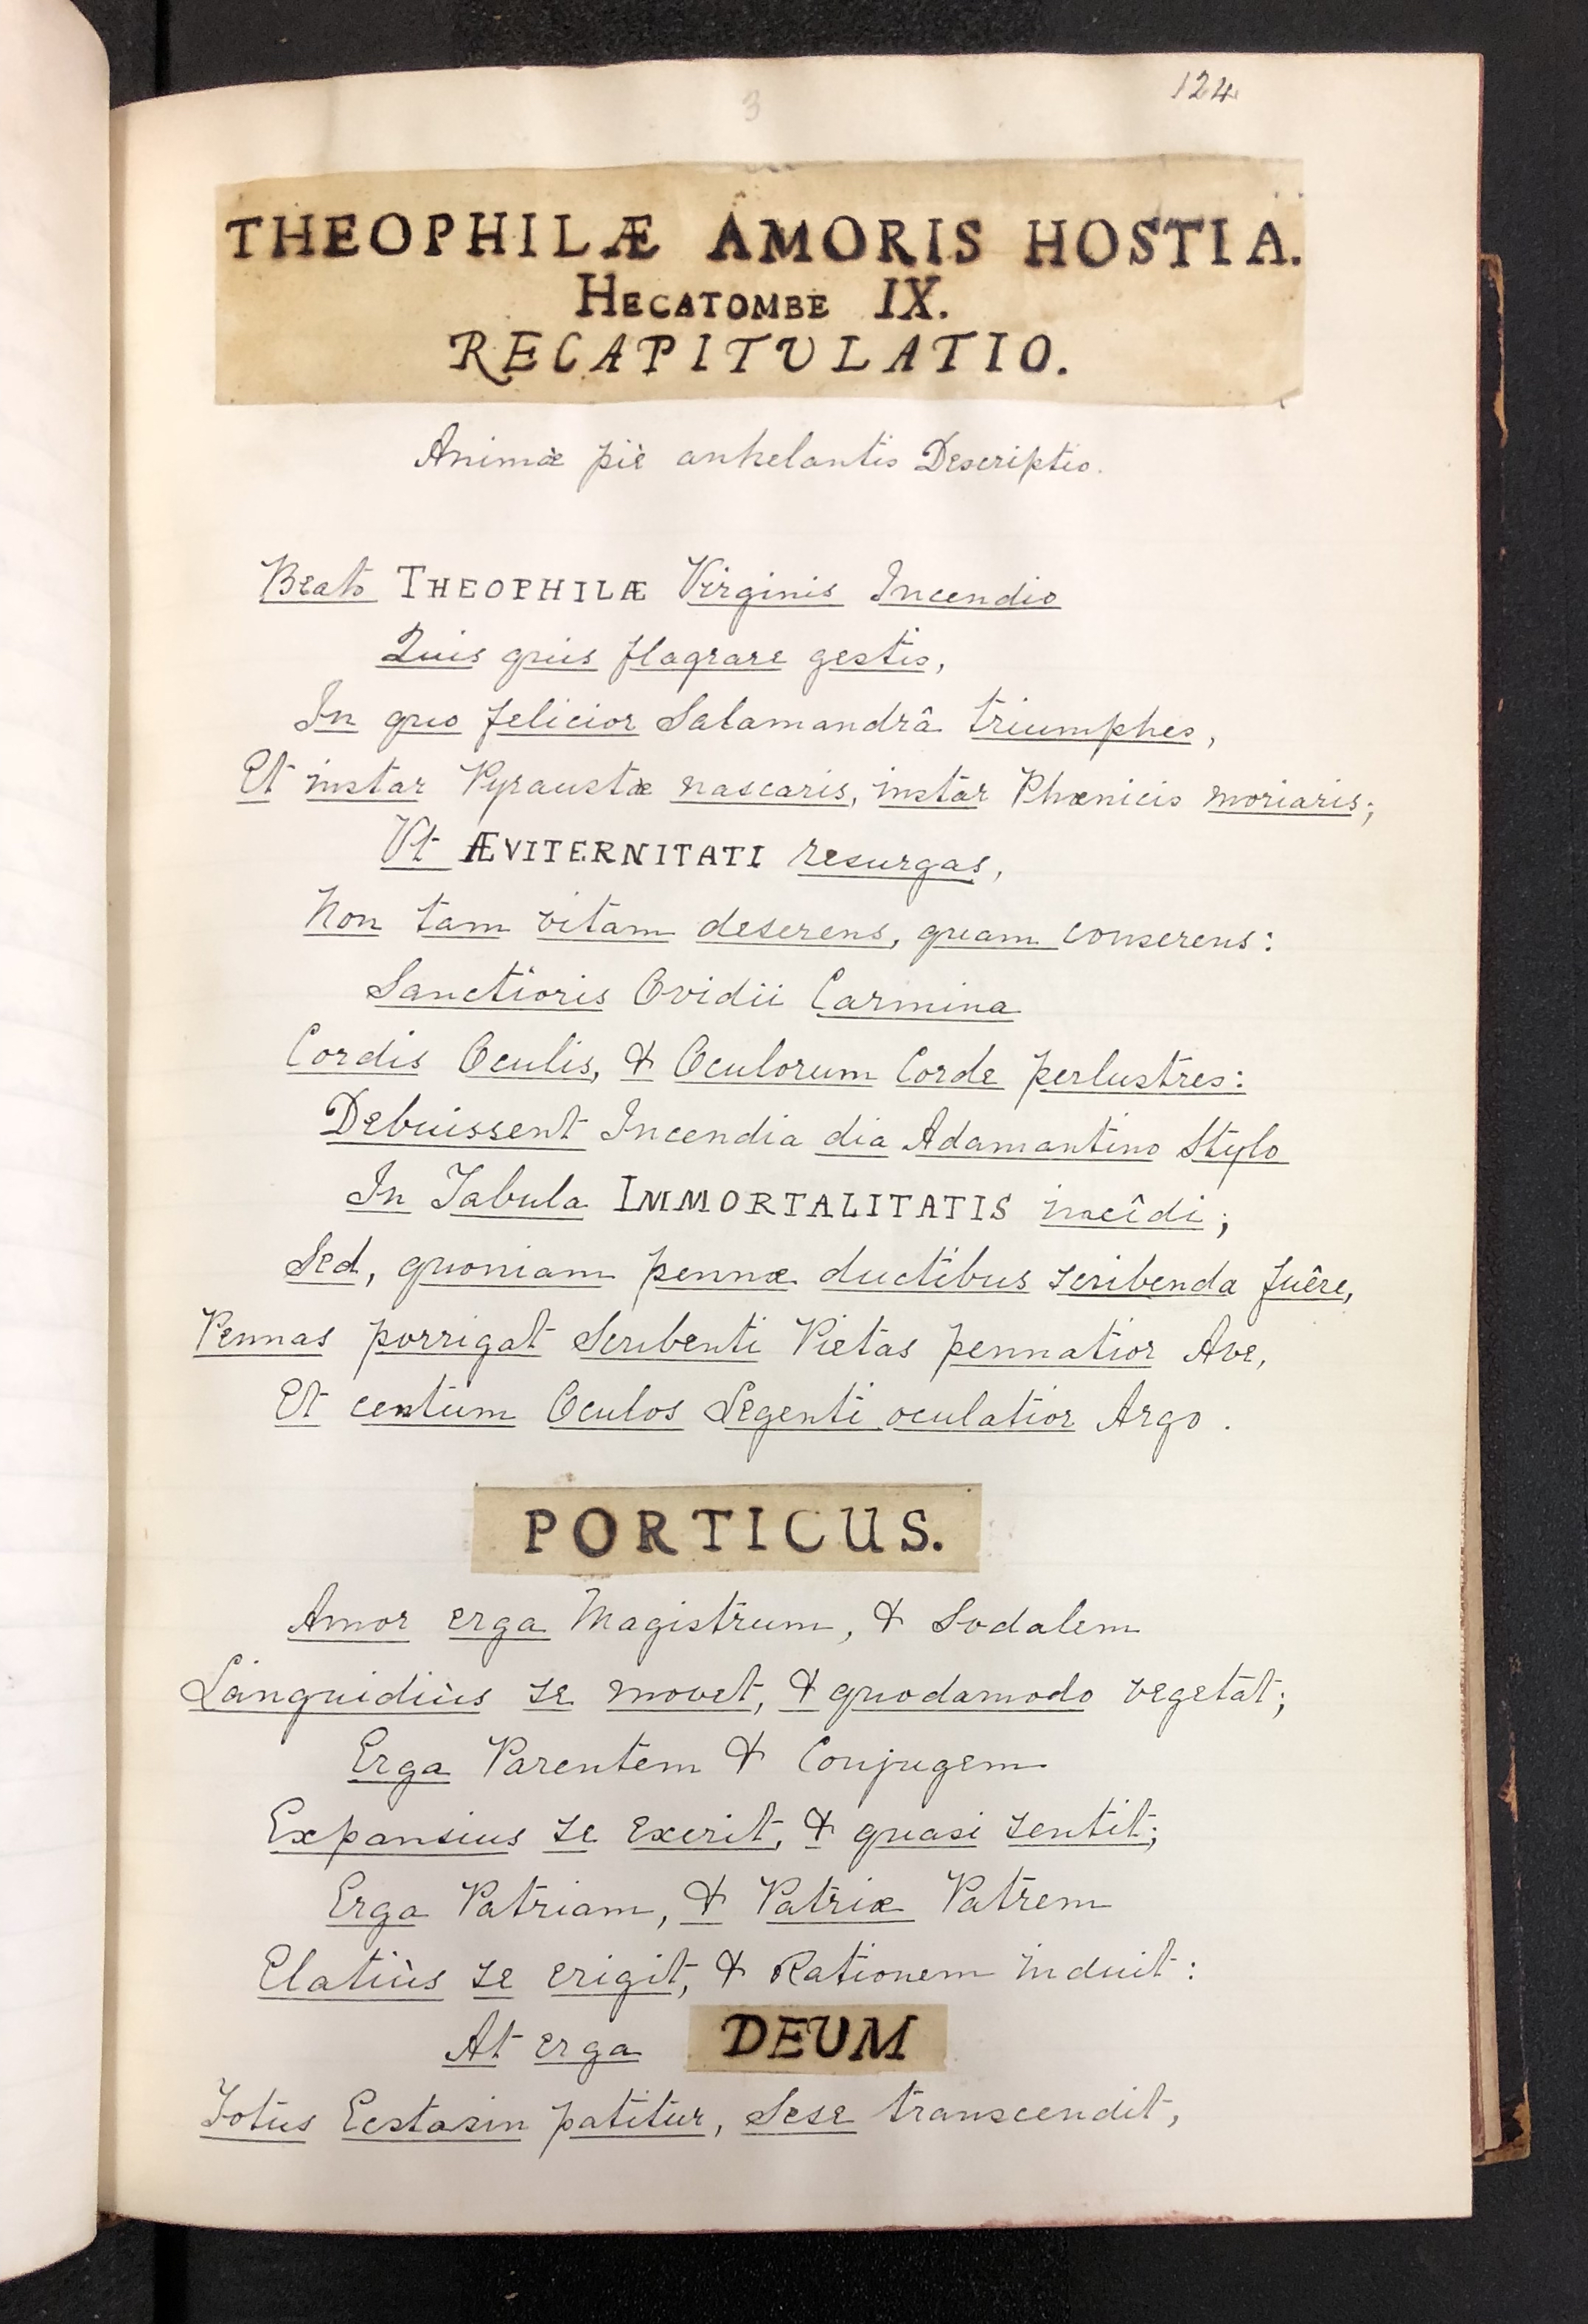 124
3
THEOPHILÆ AMORIS HOSTIA.
HECATOMBE IX.
RECAPITULATIO.
Animæ piè anhelantis Descriptio.
Beato THEOPHILÆ Virginis Incendio
Quis quis flagrare gestis,
In quo felicior Salamandrâ triumphes,
Et instar Pyraustæ nascaris, instar Phœnicis moriaris;
Vt ÆVITERNITATI resurgas,
Non tam vitam deserens, quam conserens:
Sanctioris Ovidii Carmina
Cordis Oculis, & Oculorum Corde perlustres:
Debuissent Incendia dia Adamantino Stylo
In Tabula IMMORTALITATIS incîdi;
Sed, quoniam pennæ ductibus scribenda fuêre,
Pennas porrigat Scribenti Pietas pennatior Ave,
Et centum Oculos Legenti oculatior Argo.
PORTICUS.
Amor erga Magistrum, & Sodalem
Languidiùs se movet, & quodamodo vegetat;
Erga Parentem & Conjugem
Expansius se exerit, & quasi sentit;
Erga Patriam, & Patriæ Patrem
Elatiùs se erigit, & Rationem induit:
At erga DEUM
Totus Ecstasin patitur, Sese transcendit,